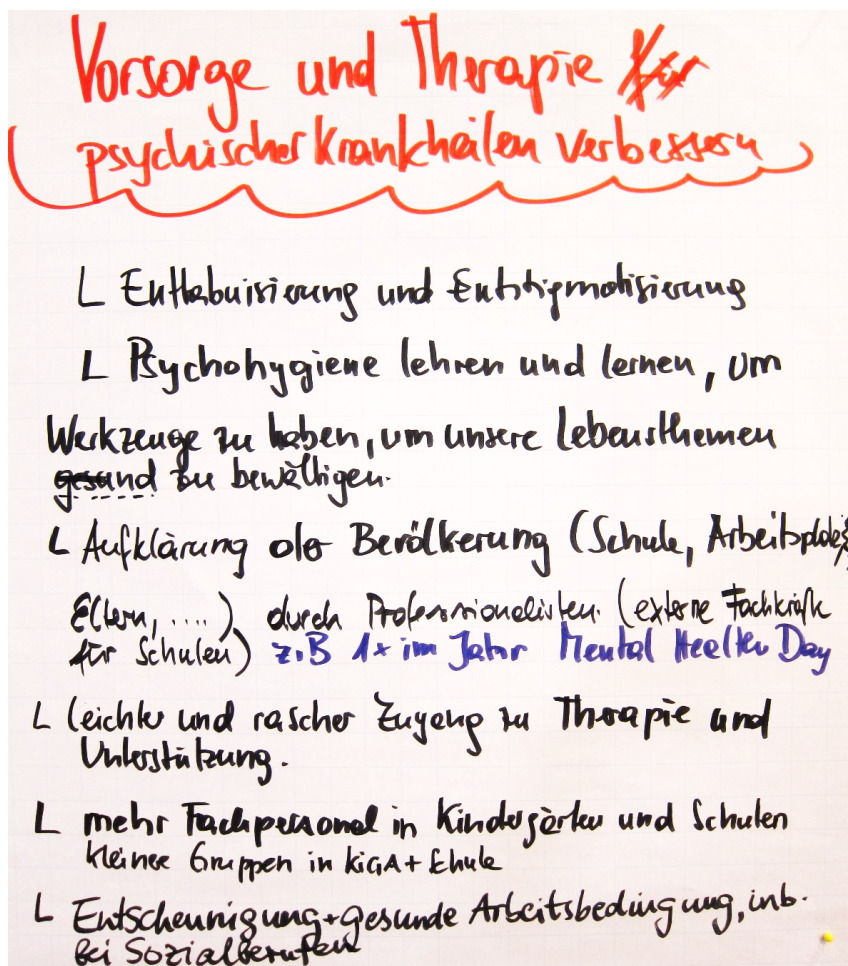 Vorsorge und Therapie
psychischer Krankheiten verbessern
L Enttabuisierung und Entstigmatisierung
L Psychohygiene lehren und lernen, um
Werkzeuge zu haben, um unsere Lebensthemen
gesund zu bewältigen.
L Aufklärung der Bevölkerung (Schule, Arbeitsplatz,
Eltern, ....) durch Professionalisten. (externe Fachkräfte
für Schulen) z.B 1x im Jahr Mental Health Day
L leichter und rascher Zugang zu Therapie und
Unterstützung.
L mehr Fachpersonal in Kindergärten und Schulen
kleinere Gruppen in KIGA + Schule
L Entscheunigung + gesunde Arbeitsbedingung, inb.
bei Sozialberufen